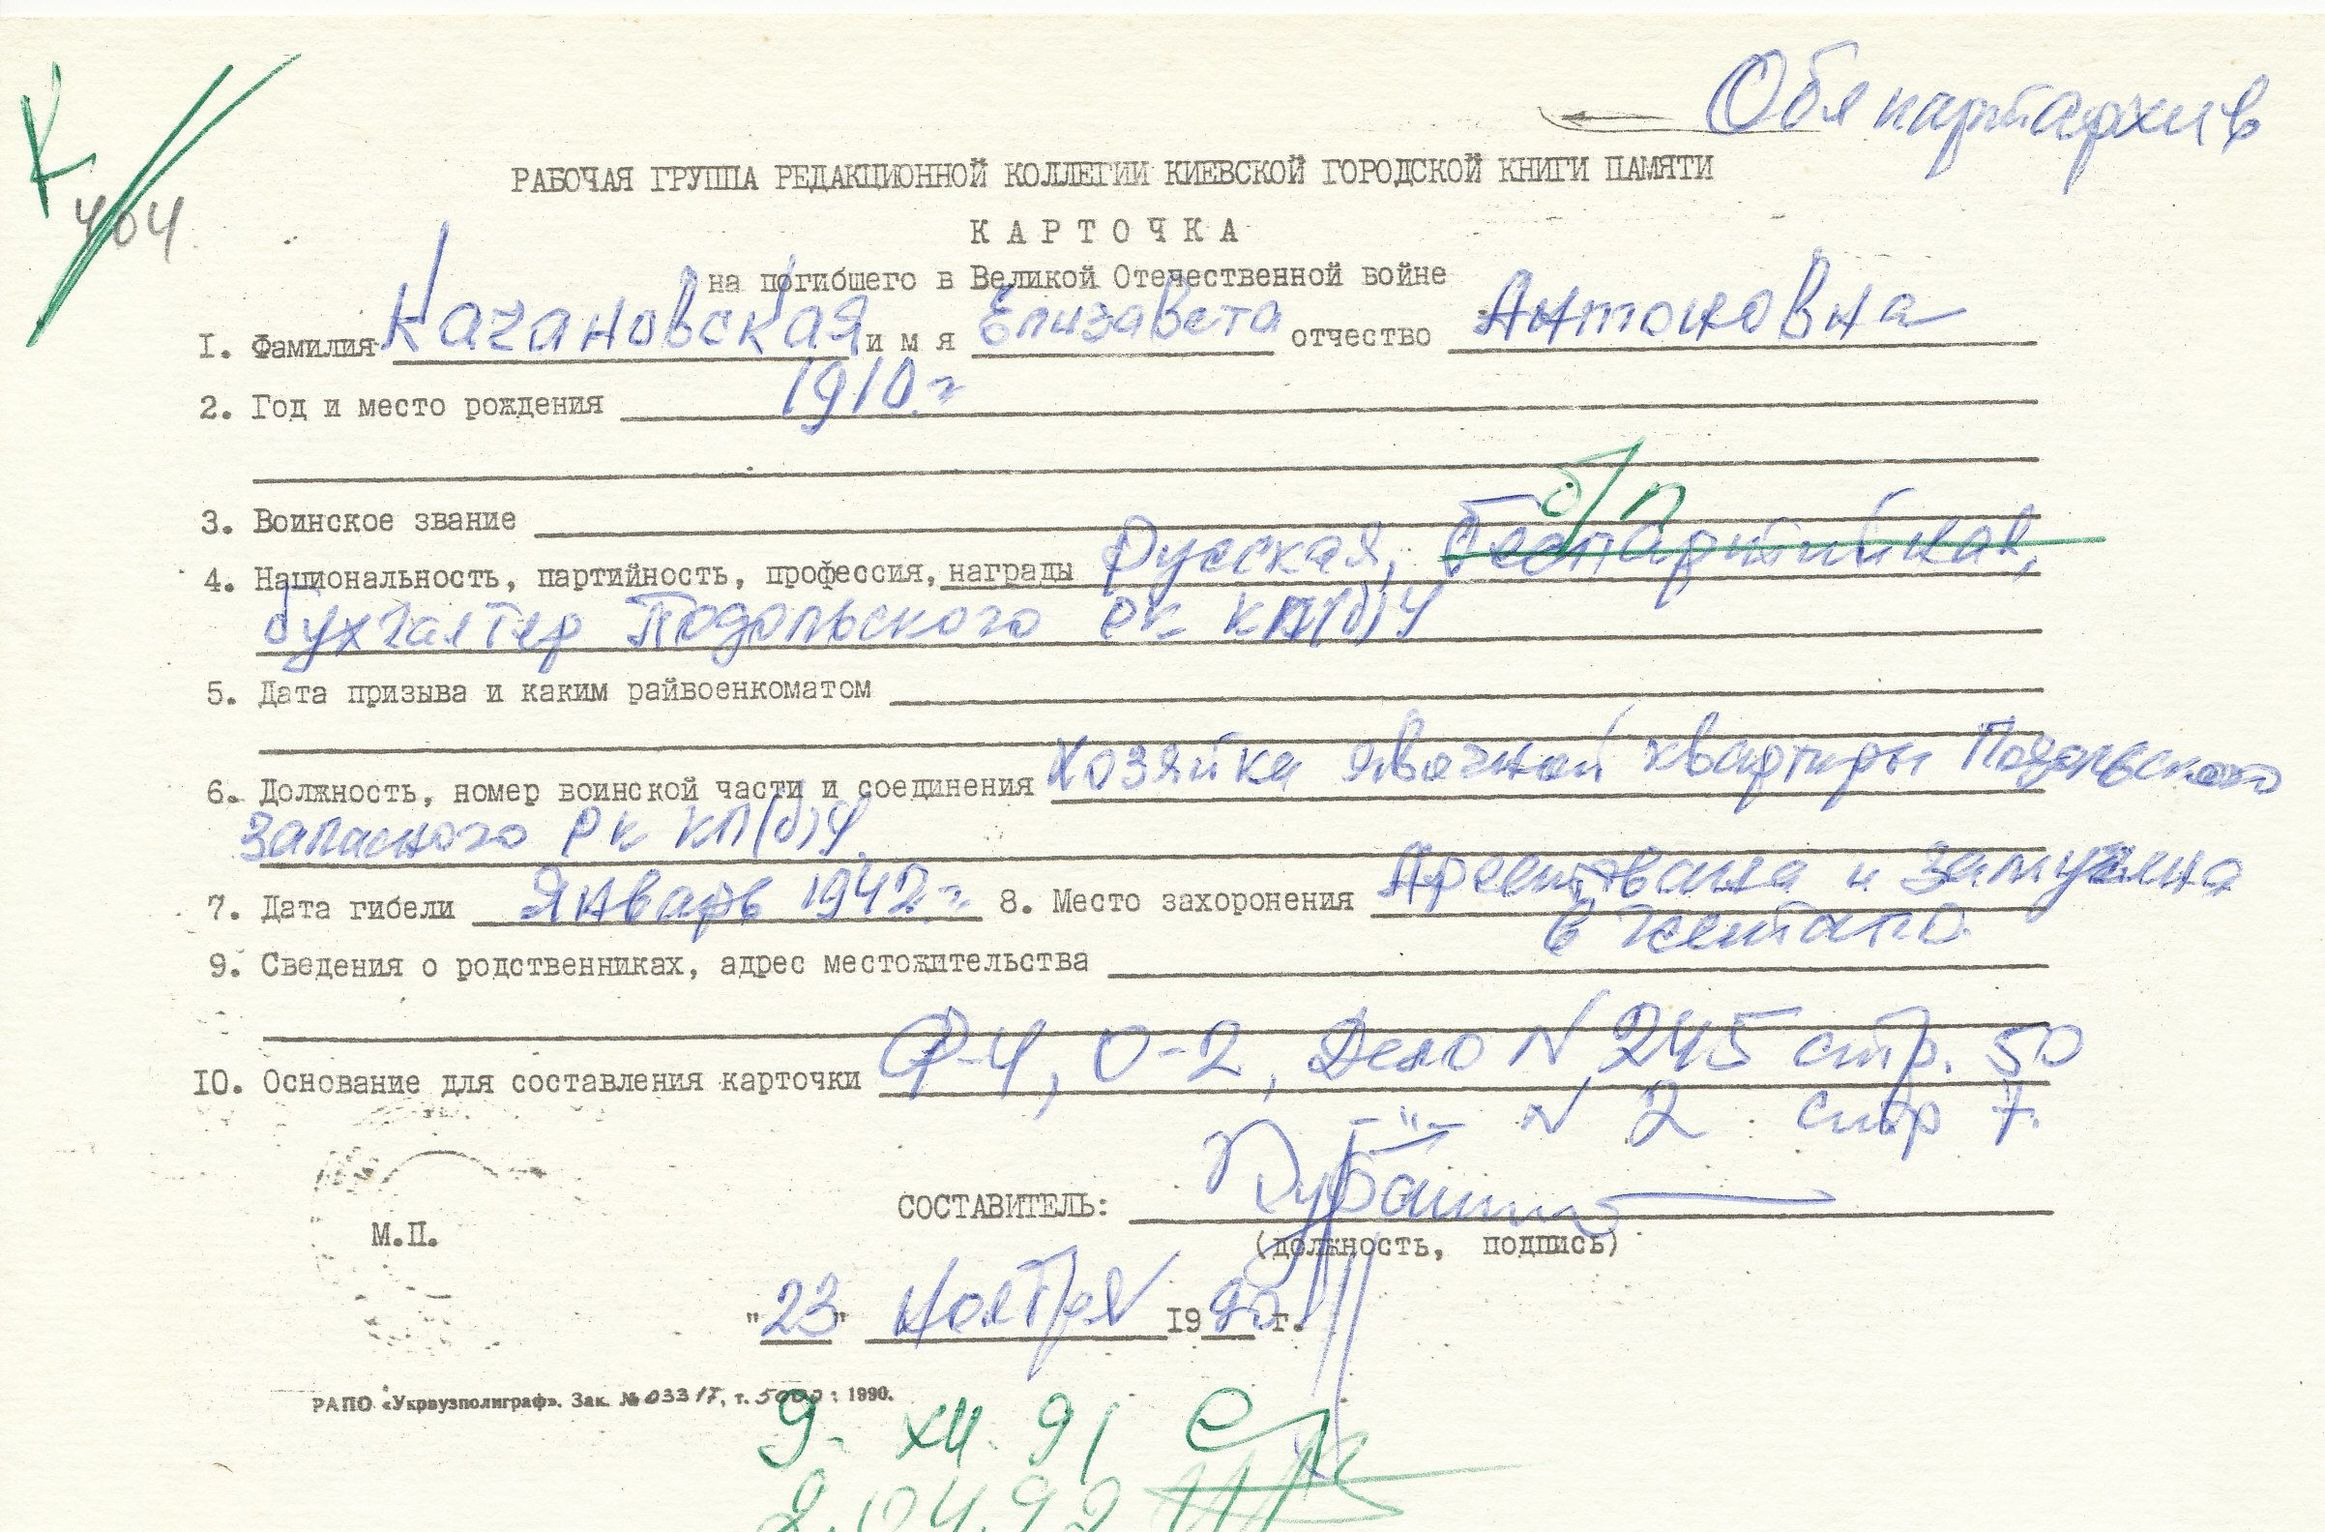 Обл партархив
К
404
РАБОЧАЯ ГРУППА РЕДАКЦИОННОЙ КОЛЛЕГИИ КИЕВСКОЙ ГОРОДСКОЙ КНИГИ ПАМЯТИ
КАРТОЧКА
на погибшего в Великой Отечественной войне
1. Фамилия Качановская имя Елизавета отчество Антоновна
2. Год и место рождения 1910 г
3. Воинское звание
б/п
4. Национальность, партийность, профессия, награды Русская, Беспартийная,
бухгалтер Подольского РК КП(б)У
5. Дата призыва и каким райвоенкоматом
6. Должность, номер воинской части и соединения Хозяйка явочной квартиры Подольского
Запасного РК КП(б)У.
7. Дата гибели Январь 1942 г. 8. Место захоронения Арестована и замучена
в гестапо.
9. Сведения о родственниках, адрес местожительства
10. Основание для составления карточки Ф-4, О-2, Дело № 245 стр. 50
-"- № 2 стр 7.
СОСТАВИТЕЛЬ:
(должность, подпись)
М.П.
"23" Ноября 1990 г.
РАПО «Укрвузполиграф». Зак. № 03317, т. 5000: 1990.
9. XII. 91
2.04.92